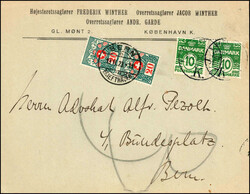 Højesteretssagfører FREDERIK WINTHER Overretssagfører JACOB WINTHER
Overretssagfører ANDR. GARDE
GL. MØNT 2. KØBENHAVN K.
DANMARK
10
DANMARK
10
20
Herrn Advokat Alfr. Pezolt.
Bundesplatz.
Bern.